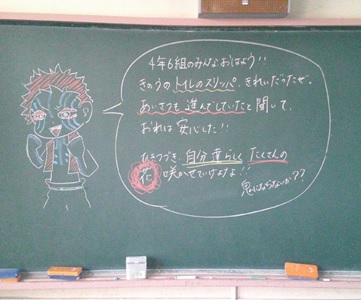 4年6組のみんなおはよう!!
きのうのトイレのスリッパ、きれいだったぜ。
あいさつも進んでしていたと聞いて、
おれは安心した!!
ひきつづき、自分達らしくたくさんの
花咲かせていけよな!!
鬼にならないか??